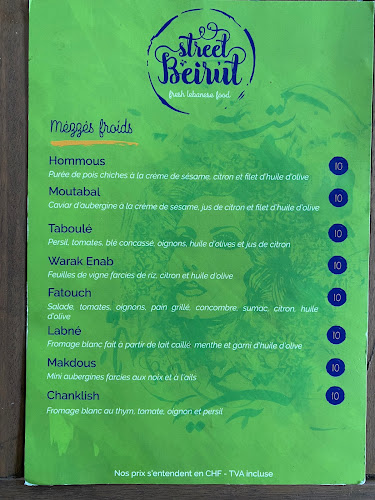 street
Beirut
fresh lebanese food
Mézzés froids
Hommous 10
Purée de pois chiches à la crème de sésame, citron et filet d'huile d'olive
Moutabal 10
Caviar d'aubergine à la crème de sésame, jus de citron et filet d'huile d'olive
Taboulé 10
Persil, tomates, blé concassé, oignons, huile d'olives et jus de citron
Warak Enab 10
Feuilles de vigne farcies de riz, citron et huile d'olive
Fatouch 10
Salade, tomates, oignons, pain grillé, concombre, sumac, citron, huile
d'olive
Labné 10
Fromage blanc fait à partir de lait caillé menthe et garni d'huile d'olive
Makdous 10
Mini aubergines farcies aux noix et à l'ails
Chanklish 10
Fromage blanc au thym, tomate, oignon et persil
Nos prix s'entendent en CHF - TVA incluse